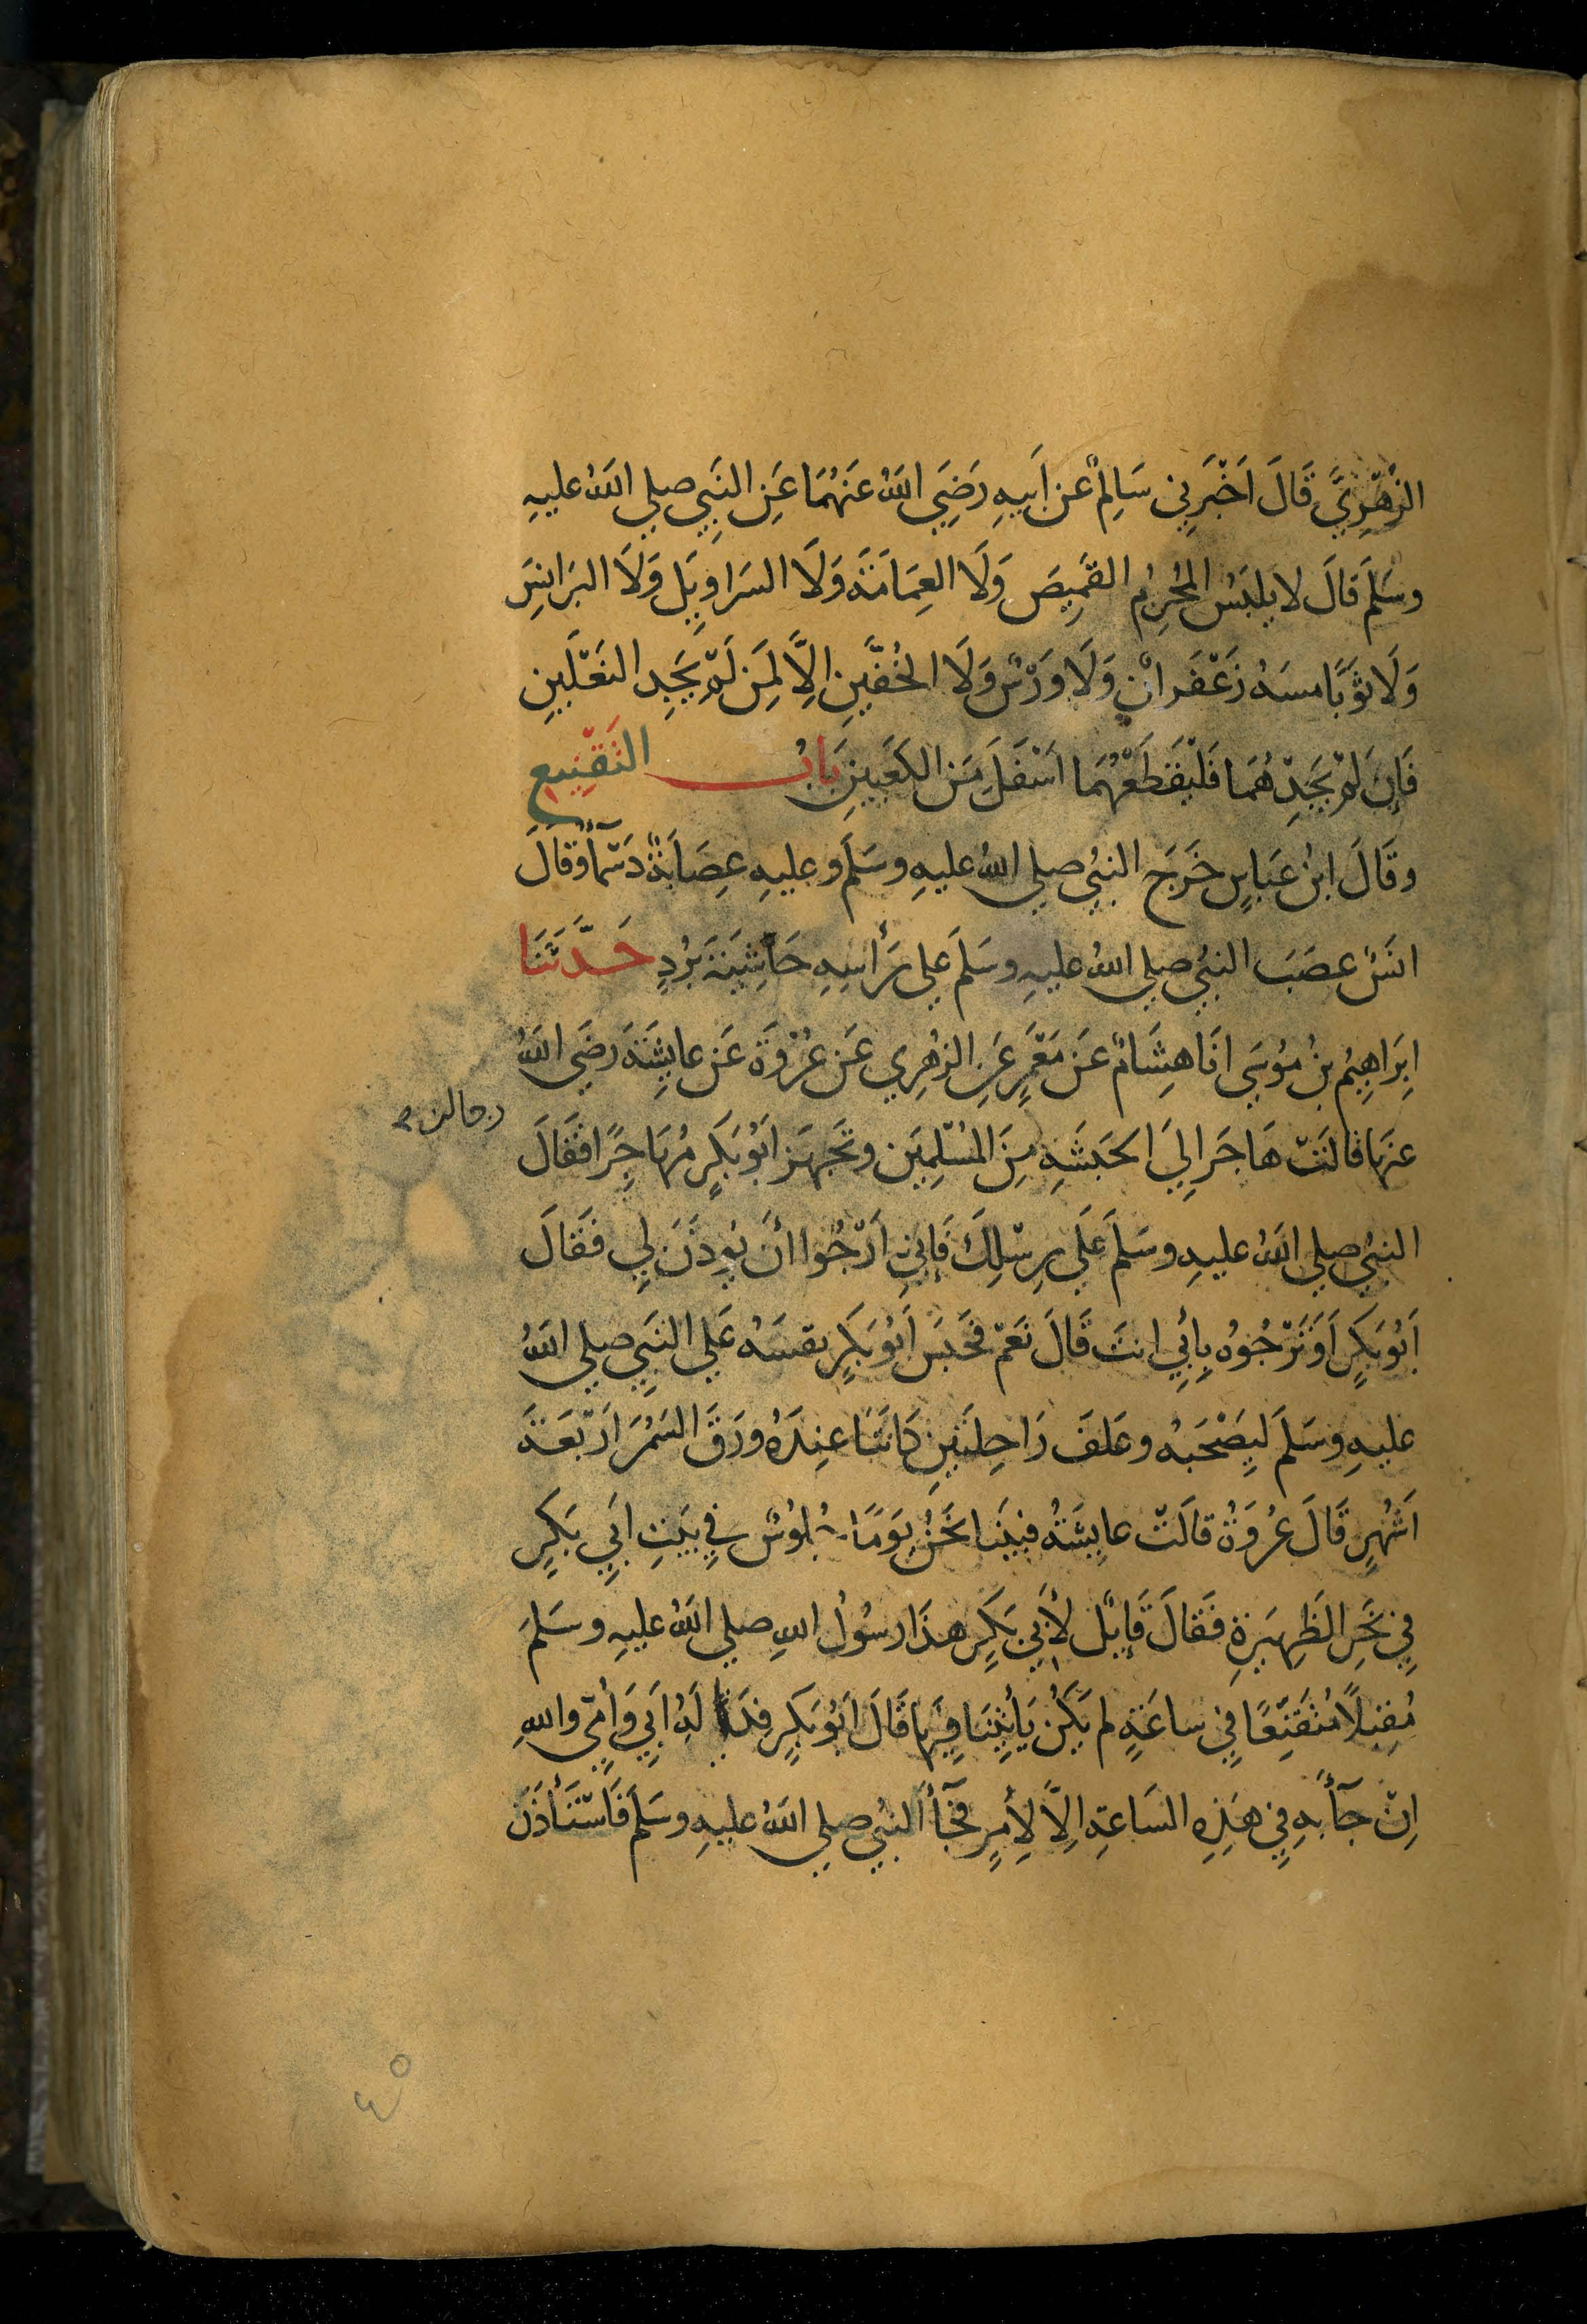 الزُهْرِيَّ قَالَ اَخْبَرَنِي سَالِمٌ عَن اَبِيهِ رَضِيَ اللهُ عَنهُمَا عَنِ النَبِي صلي اللهُ عليهِ
وسَلمَ قالَ لا يلبَسُ المُحْرِمُ القَمِيصَ وَلَا العِمَامَةَ وَلَا السَرَاوِيلَ وَلَا البَرَانِسَ
وَلَا ثَوبًا مسهُ زَعْفَرانٌ وَلَا وَرْسٌ وَلَا الخُفَّينِ اِلَّا لِمَن لَمْ يَجِدِ النَعْلَينِ
فَإِن لَمْ يَجِدْهُمَا فَلْيَقْطَعْهُمَا اَسْفَلَ مِنَ الكَعْبَينِ بَابُ التَقْنِيعِ
وقَالَ ابنُ عَباسٍ خَرَجَ النبيُ صلي اللهُ عليهِ وسَلمَ وعليهِ عِصَابَةٌ دَسْمَآءُ وَقَالَ
انَسٌ عصَبَ النبيُ صلي اللهُ عليهِ وسَلمَ علي رَأسِهِ حَاشِيَةَ بُرْدٍ حَدَّثَنَا
اِبرَاهِيمُ بنُ مُوسَي انَا هِشَامٌ عَن مَعْمَرٍ عَنِ الزهُرِي عَن عُرْوَةَ عَن عايِشَةَ رضَي اللهُ
عنهَا قالَتْ هَاجَرَ اِلَي الحَبَشَهِ مِنَ المُسْلِمِينَ وتَجَهزَ ابُو بَكرٍ مُهَاجِرًا فقَالَ
رجال من
النبيُ صلي اللهُ عليهِ وسَلمَ عَلَي رِسْلِكَ فَإِنِي اَرْجُوا أنَ يُوذَنَ لِي فَقَالَ
اَبُو بَكرٍ اَوَتَرْجُوهُ بِأبِي انتَ قَالَ نَعَمْ فحَبَسَ اَبُو بَكرٍ نفسَهُ عَلي النَبِي صلي اللهُ
عليهِ وسَلمَ لِيَصْحَبَهُ وعَلفَ رَاحِلتَينِ كَانَتَا عِندَهُ ورَقَ السَمُرِ اَرْبَعَةَ
اَشْهُرٍ قَالَ عُرْوَةُ قالَتْ عايِشَةُ فبينَا نَحَنُ يَومًا جُلوُسٌ في بيَتِ ابَي بَكرٍ
فِي نَحْرِ الظَهِيرَةِ فَقَالَ قَايِلٌ لأَبي بَكرٍ هذَا رسُولُ اللهِ صلي اللهُ عليهِ وسَلمَ
مُقبِلًا مُتَقَنِعًا فِي ساعَةٍ لم يَكُن يَأتِينَا فِيهَا قَالَ ابُو بَكرٍ فِدَا لَهُ ابَي وَأمِي واللهِ
اِنْ جآءَ بهِ فِي هَذِهِ السَاعةِ اِلَّا لأِمرٍ فجَآءَ النبيُ صلي اللهُ عليهِ وسَلمَ فَاسْتَأذَنَ
٤٥